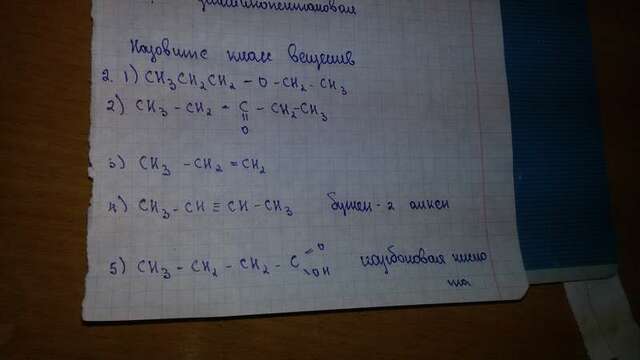 Назовите класс веществ
2. 1) CH3CH2CH2 - O - CH2 - CH3
2) CH3 - CH2 - C - CH2-CH3
=
O
3) CH3 - CH2 = CH2
4) CH3 - CH ≡ CH - CH3 бутен-2 алкен
5) CH3 - CH2 - CH2 - C =O -OH карбоновая кисло
та